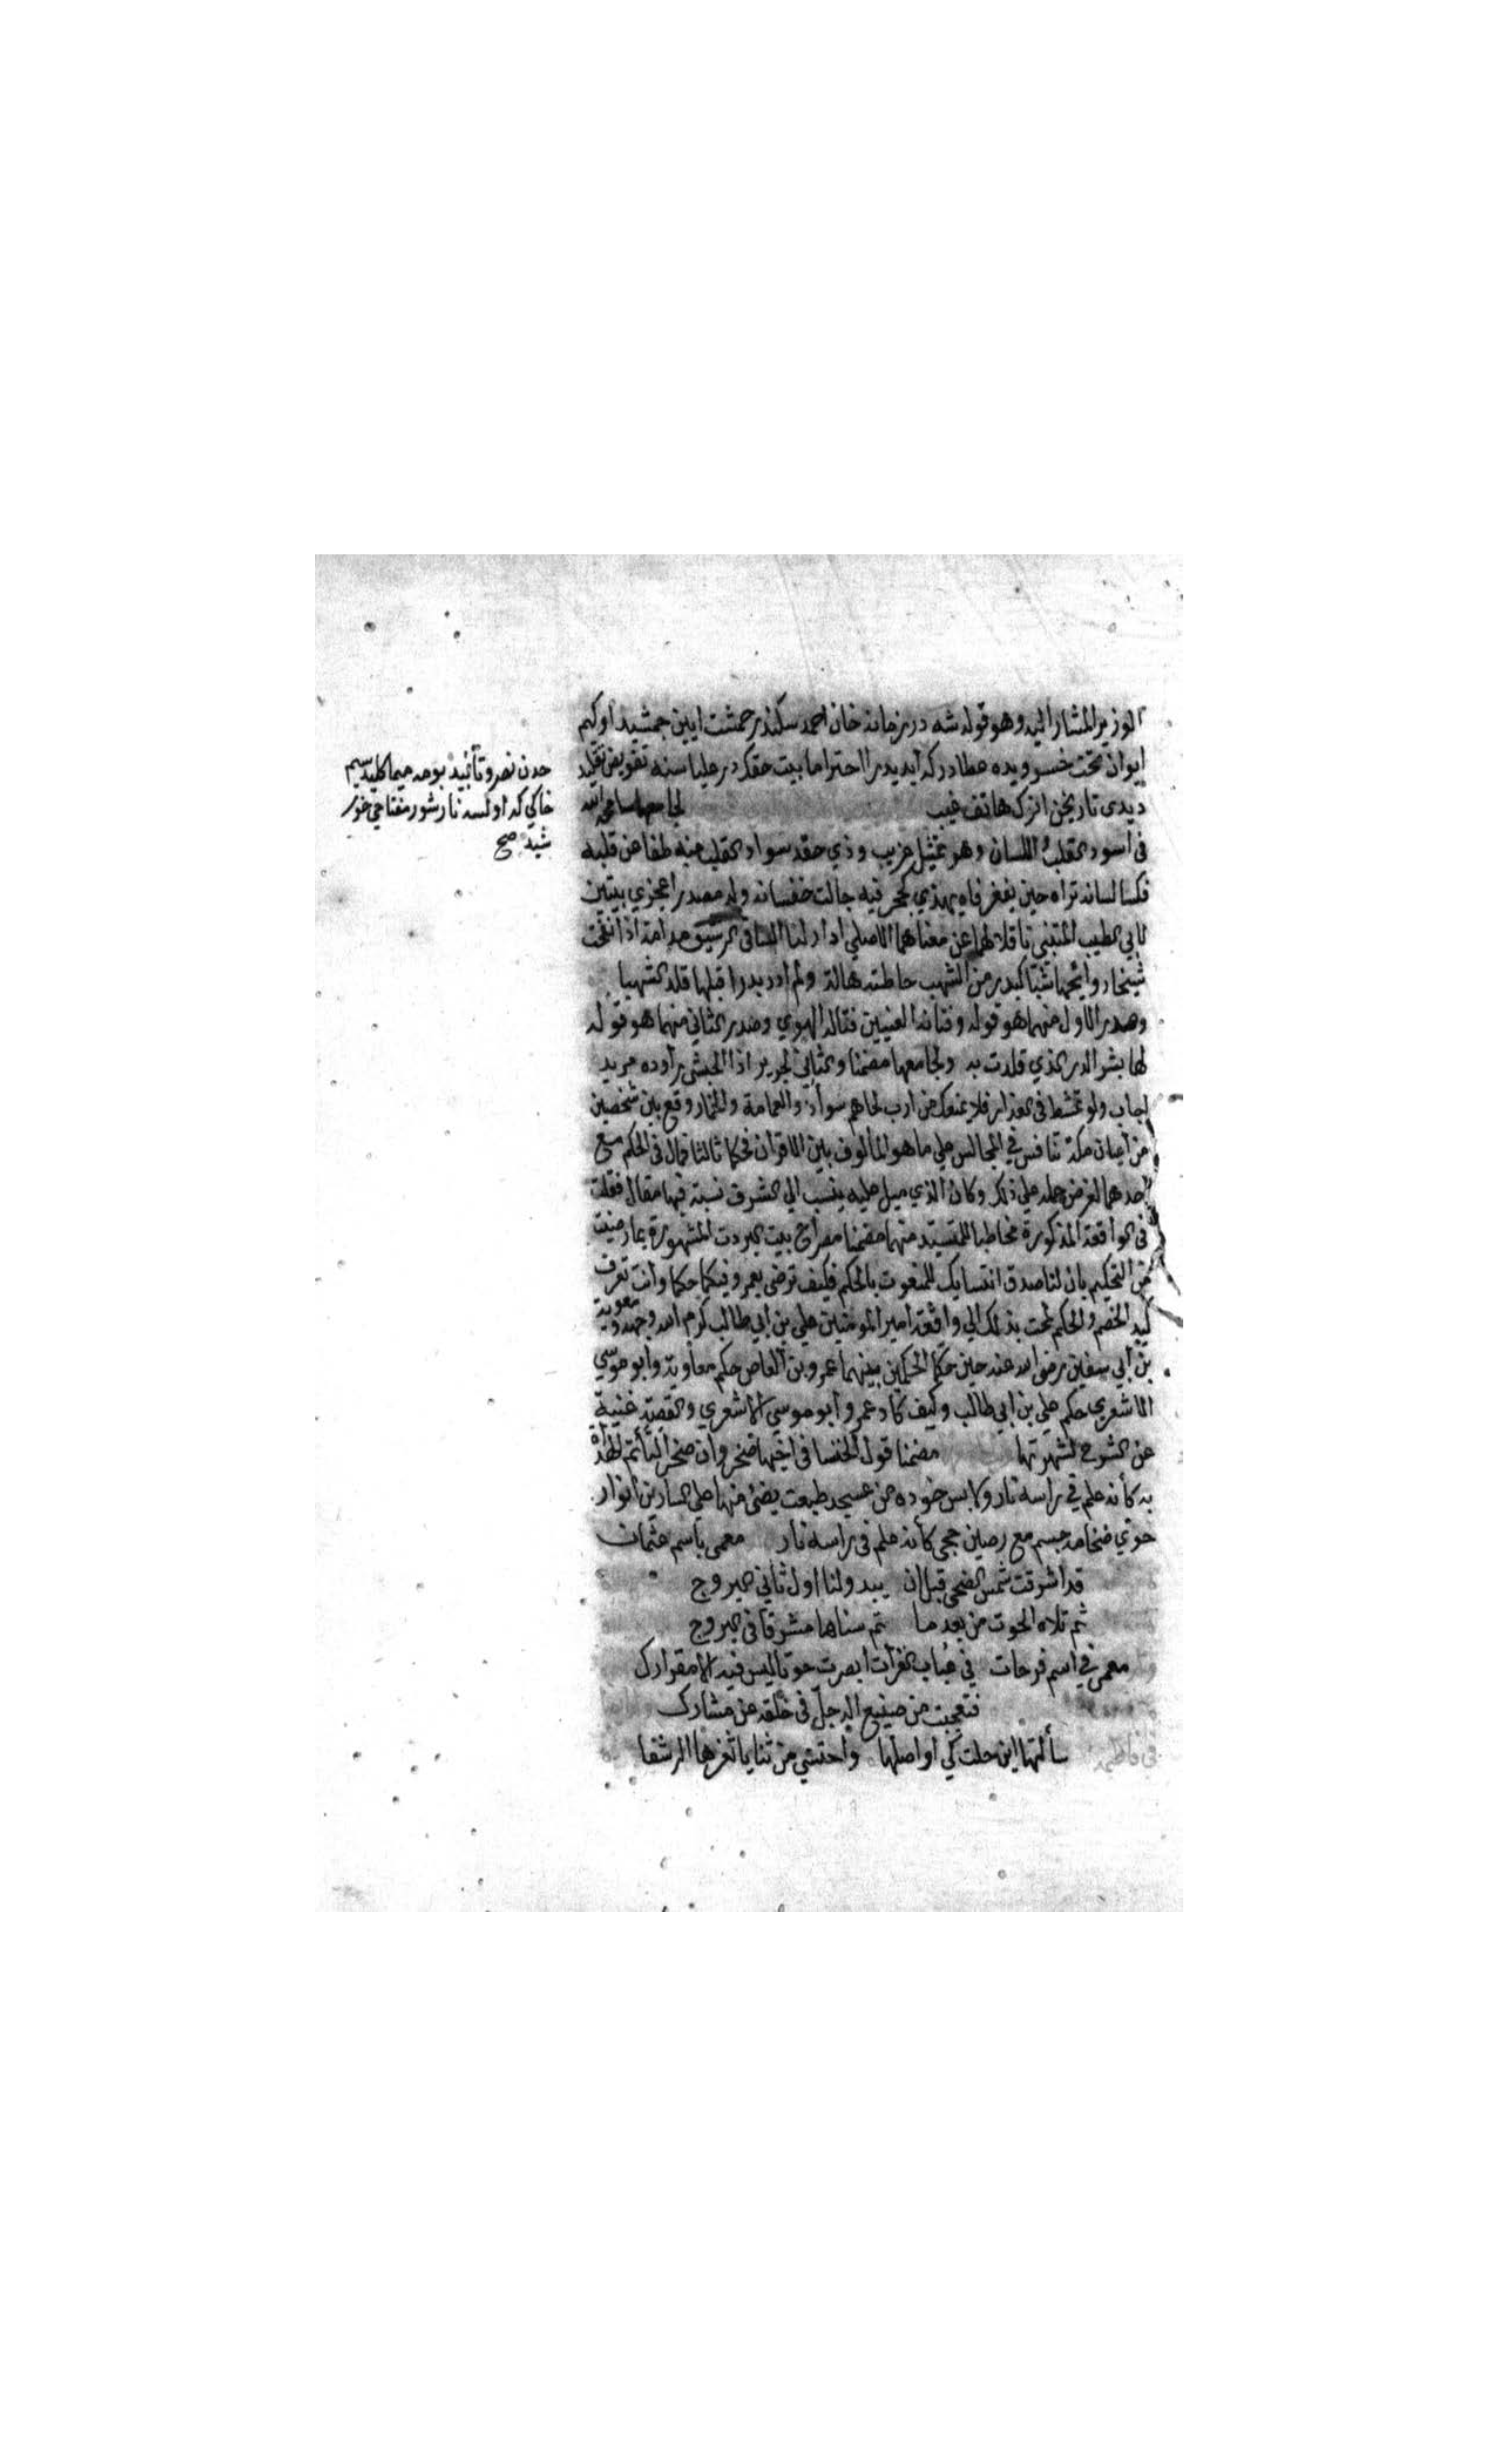 الوزير المشار اليه وهو قوله شه در زمانه خان احمد سكندر حشمت ايين جمشيد اوكيم
ايوان تخت خسرو يده عطادر كه ايديدرا احتراما بيت حقك در عليا سنه تفويض تقليد
ديدى تاريخن اتزك هاتف غيب لجامعها سامحه الله
فى اسود القلب اللسان وهو تمثيل غريب وذي حقد سواد القلب منه طفا عن قلبه
فكسا لسانه تراه حين يفغر فاه يهذي كجحر فيه جالت خنفسانه وله مصدرا عجزي بيتين
لابي الطيب المتنبي ناقلا لهما عن معناهما الاصلي ادار لنا الساقى الرشيق مدامة اذا انفحت
شيخا وايحها شبا كبدر من الشهب حاطته هالة ولم ار بدرا قبلها قلد الشهبا
وصدر الاول منهما هو قوله وفتانة العينين قتالة الهوي وصدر الثاني منهما هو قوله
لها بشر الدر الذي قلدت به ولجامعها مضمنا والثاني لجرير اذا الجبش راوده مريد
اجاب ولو تمشط فى العذار فلا يمنعك من ارب لحاهم سواء ذو العمامة والخمار وقع بين شخصين
من اعيان مكة تنافس في المجالس علي ما هو المألوف بين الاقران فحكما ثالثا فمال فى الحكم مع
احدهما لغرض حمله علي ذلك وكان الذي ميل عليه ينسب الي الشرف نسبة فيها مقال فقلت
فى الواقعة المذكورة مخاطبا للمتسيد منهما مضمنا مصراع بيت البردت المشهورة بما رضيت
من التحكيم بان لنا صدق انتسابك للمنعوت بالحكم فكيف ترضى بعمرو فيكما حكما وانت تعرف
كيد الخصم والحكم لمحت بذلك الي واقعة امير المومنين علي بن ابي طالب كرم الله وجهه ومعوية
بن ابي سفين رضى الله عنه حين حكما الحكمين بينهما عمرو بن العاص حكم معاوية وابو موسي
الاشعري حكم علي بن ابي طالب وكيف كاد عمرو ابو موسي الاشعري والقصة غنية
عن الشرح لشهرتها مضمنا قول الخنسا فى اخيها صخر وان صخرا لتأتم الهداة
به كأنه علم في راسه نار ولابس خوده من عسجد طبعت يضئ منها علي السارين انوار
حوي ضخامة جسم مع رصين حجي كأنه علم فى راسه نار معمى باسم عثمان
قد اشرقت شمس الضحى قبل ان يبدو لنا اول ثاني البروج
ثم تلاه الحوت من بعد ما تم سناها مشرقا فى البروج
معمى في اسم فرحات في عباب الفرات ابصرت حوتا ليس فيه الا مقر ادرك
فتعجبت من صنيع الرجل فى خلقه من مشارك
في فاطمه سألتها اين حلت كي اواصلها واحتسي من ثنايا ثغرها الرشفا
حدن نصر وتأئيد بوجه ميما كليد سيم
خاكي كه اولسه نارشور مفتاحي خور
شيد صح